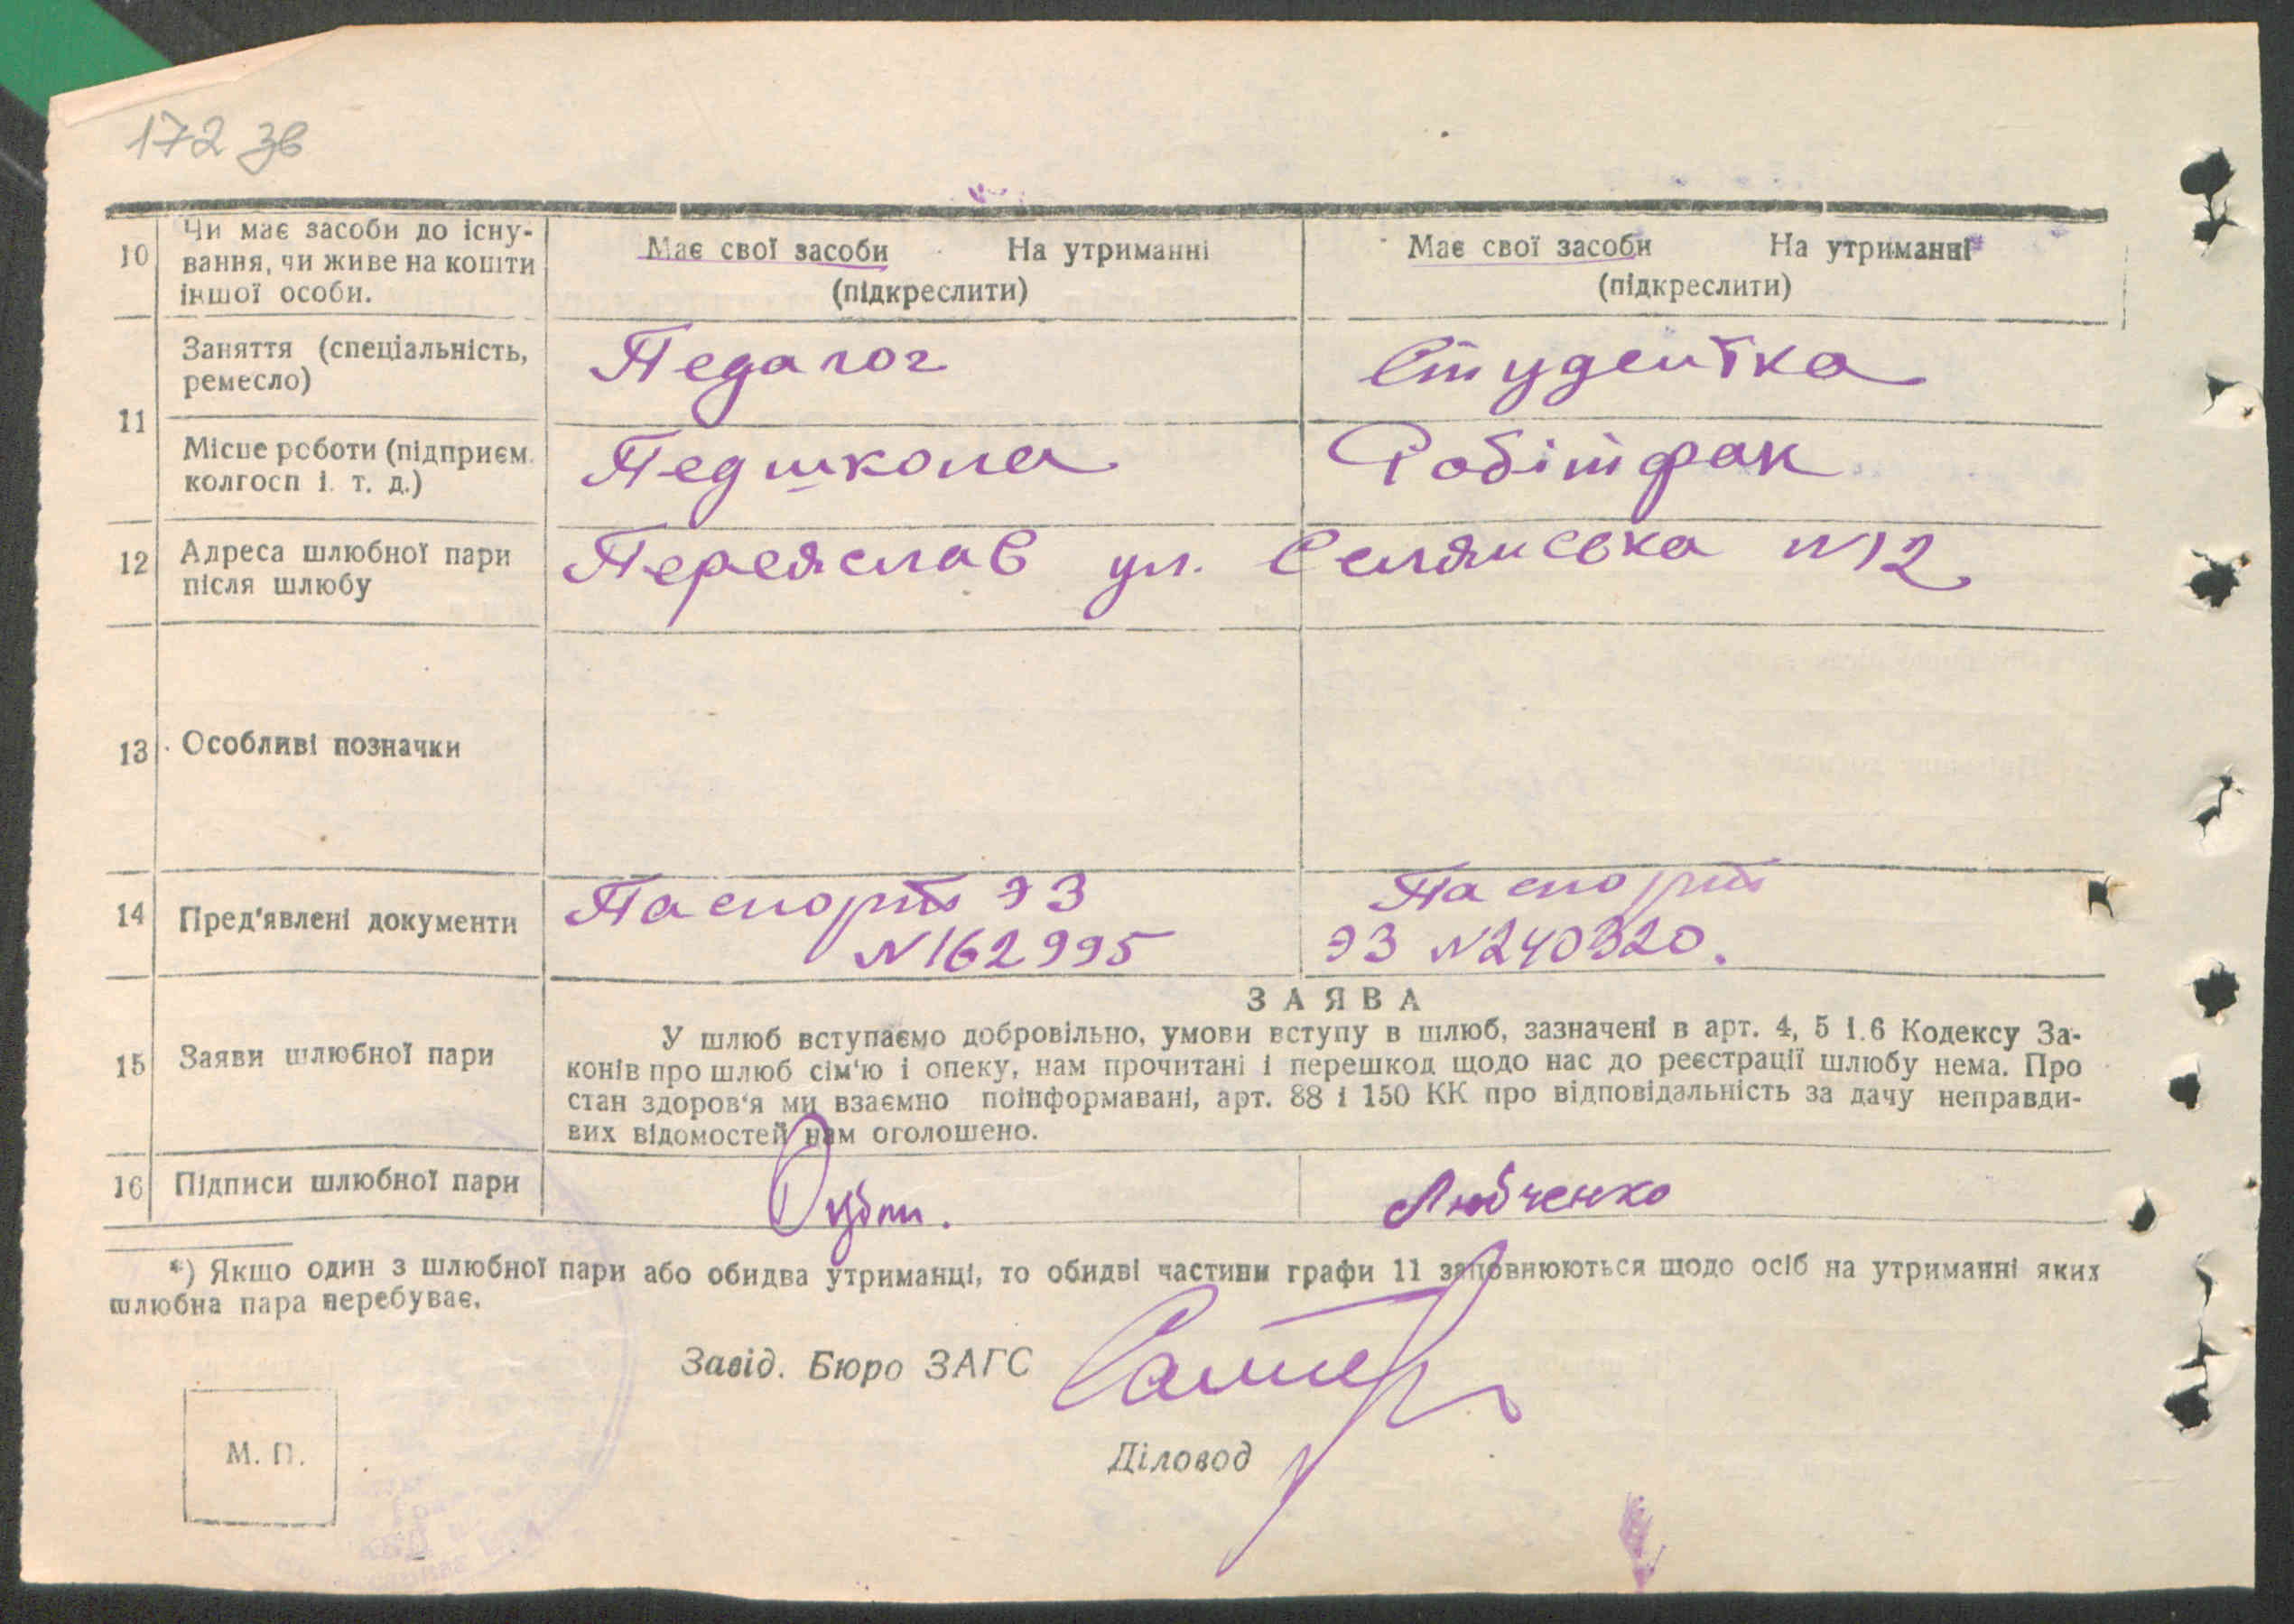 172 зв
10 Чи має засоби до існу-
вання, чи живе на кошти
іншої особи.
Має свої засоби На утриманні
(підкреслити)
Має свої засоби На утриманні
(підкреслити)
11
Заняття (спеціальність,
ремесло)
Педагог
Студентка
Місце роботи (підприєм.
колгосп і. т. д.)
Педшкола
Робітфак
12 Адреса шлюбної пари
після шлюбу
Переяслав ул. Селянська №12
13 Особливі позначки
14 Пред'явлені документи
Паспорт ЭЗ
№162995
Паспорт
ЭЗ №240320.
15 Заяви шлюбної пари
ЗАЯВА
У шлюб вступаємо добровільно, умови вступу в шлюб, зазначені в арт. 4, 5 і.6 Кодексу За-
конів про шлюб сім'ю і опеку, нам прочитані і перешкод щодо нас до реєстрації шлюбу нема. Про
стан здоров'я ми взаємно поінформавані, арт. 88 і 150 КК про відповідальність за дачу неправди-
вих відомостей нам оголошено.
16 Підписи шлюбної пари
Любченко
*) Якщо один з шлюбної пари або обидва утриманці, то обидві частини графи 11 заповнюються щодо осіб на утриманні яких
шлюбна пара перебуває.
Завід. Бюро ЗАГС
Діловод
М. П.